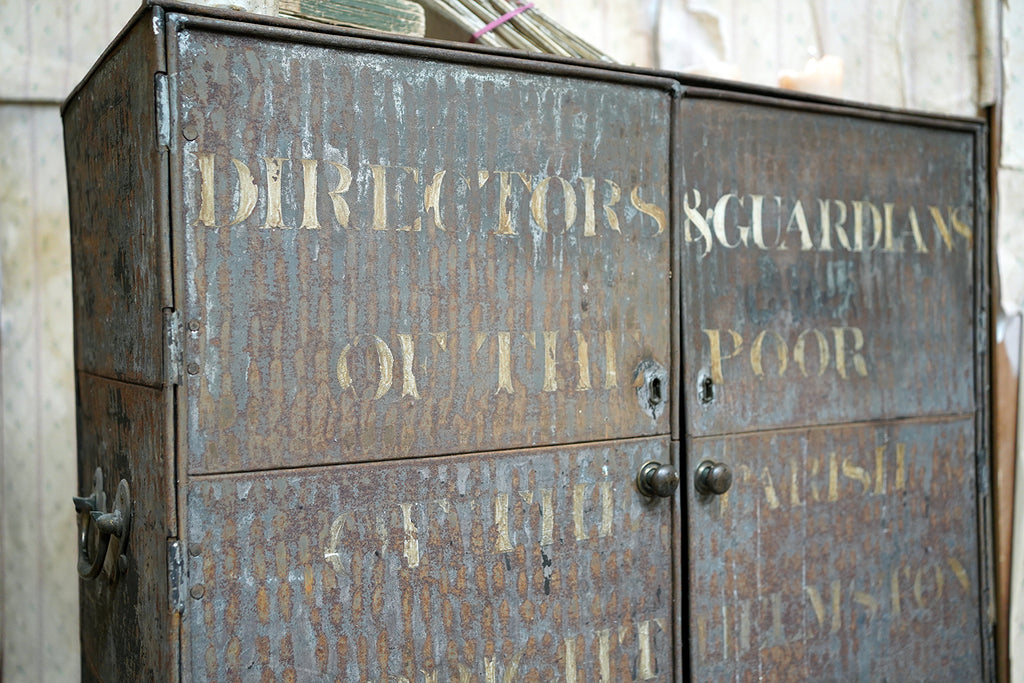 DIRECTORS & GUARDIANS
OF THE POOR
OF THE PARISH